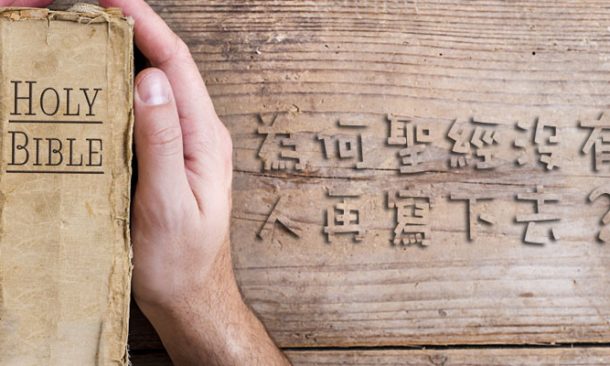 HOLY
BIBLE
為何聖經沒有
人再寫下去？